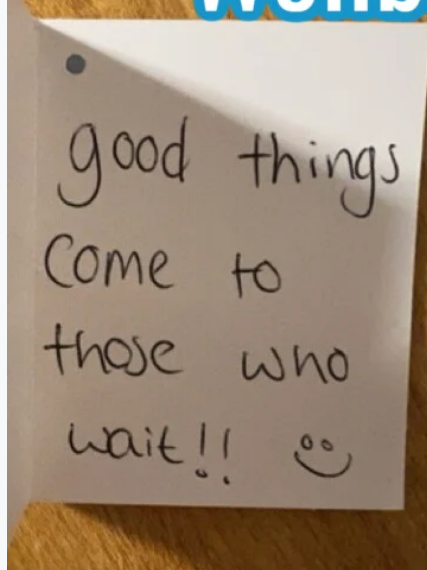 good things
come to
those who
wait!!